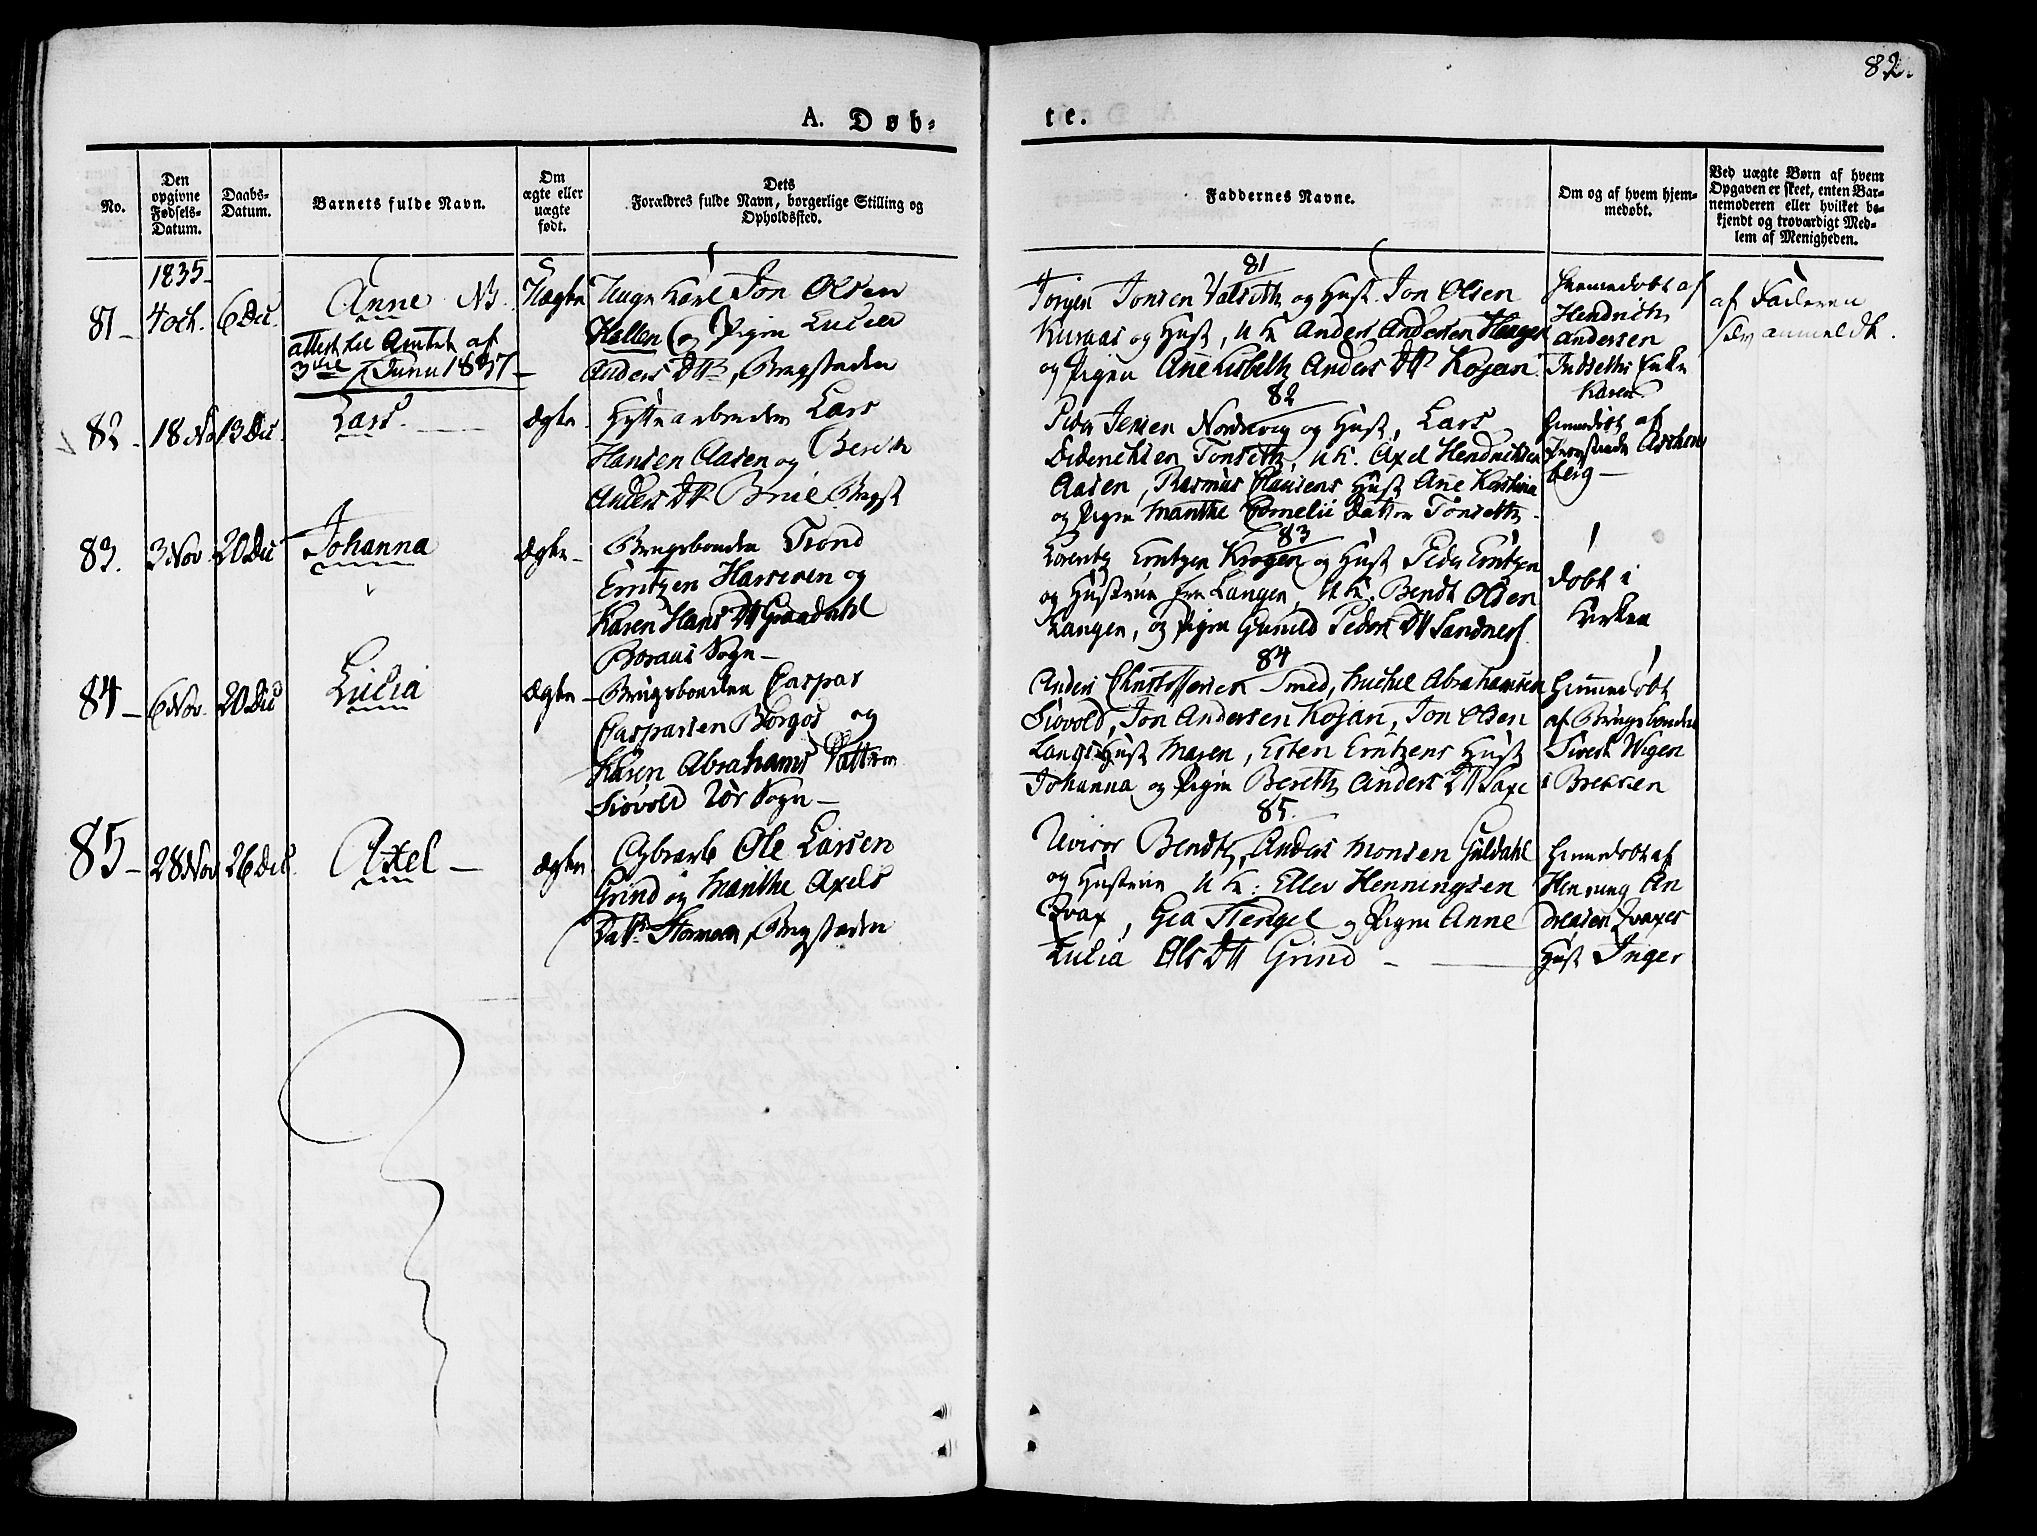 82.
A. Døb-
te.
No.
Den opgivne Fødsels-Datum.
Daabs-Datum.
Barnets fulde Navn.
Om ægte eller uægte født.
Dets Forældres fulde Navn, borgerlige Stilling og Opholdssted.
Faddernes Navne.
Om og af hvem hjem-medøbt.
Ved uægte Børn af hvem Opgaven er skeet, enten Bar-nemoderen eller hvilket be-kjendt og troværdigt Med-lem af Menigheden.
1835
81 - 4 Oct. 6 Dec.
Anne NB.
attest til Amtet af
3die Junii 1837 -
Uægte
Unge Karl Jon Olsen
Hellen og Pigen Lucia
Anders Dtr, Bergstaden
81
Jørgen Jonsen Valseth og Hust. Jon Olsen
Kuraas og Hust, UK Anders Andersen Haagen
og Pigen Ane Lisbeth Anders Dtr Kojan
hjemmedøbt af
Hendrich
Andersen
Indseths Enke
Karen
af Faderen
selv anmeldt.
82 - 18 No 13 Dec.
Lars -
Ægte
Hyttearbeider Lars
Hansen Aasen og Bereth
Anders Dtr Brue Bergst
82
Peder Jensen Nordvig og Hust, Lars
Diderichsen Tønseth, UK. Axel Hendrichsen
Aasen, Rasmus Clausens Hust Ane Kirstina
og Pigen Marithe Cornelii Datter Tønseth -
hjemmedøbt af
Aschen
berg -
83. 3 Nov 20 Dec
Johanna
Ægte -
Brugsbonden Trond
Erntzen Harsioen og
Karen Hans Dtr Graadahl
Boraas Sogn -
83
Lorentz Erntzen Krogen og Hust Peder Erntzen
og Hustrue fra Langen, UK. Bendt Olsen
Langen, og Pigen Gunild Peders Dtr Sandnes
døbt i
Kirken
84 - 6 Nov. 20 Dec
Lucia
Ægte -
Brugsbonden Caspar
Casparsen Borgos og
Karen Abrahams Datter
Siovold Aör Sogn -
84
Anders Christophersen Smed, Michel Abrahamsen
Siovold, Jon Andersen Kojan, Jon Olsen
Langs Hust Maren, Esten Erntzens Hust
Johanna og Pigen Bereth Anders Dtr Saxe
hjemmedøbt
af Brugsbonden
Sivert Wigen
i Brekken
85 - 28 Nov 26 Dec.
Axel -
Ægte
Ole Larsen
Grind og Marithe Axels
Datr Stormoen, Bergstaden
85.
Revisor Bendtz, Anders Monsen Guldahl
og Hustrue UK: Ellev Henningsen
Qvax, Gea Stengel og Pigen Anne
Lucia Ols Dtr Grind -
hjemmedøbt af
Henning An
dreasen Qvaxes
Hust Inger